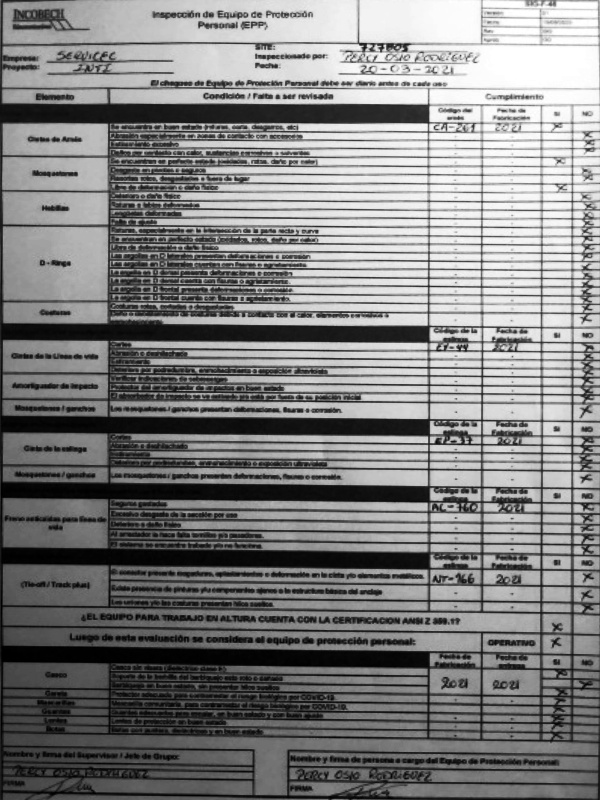 INCOBECH
Inspección de Equipo de Protección
Personal (EPP)
SIG-F-46
Empresa: SERVITEC
Proyecto: INTI
SITE: 727805
Inspeccionado por: PERCY OSIO RODRIGUEZ
Fecha: 20-03-2021
El chequeo de Equipo de Protección Personal debe ser diario antes de cada uso
Elemento Condición / Falta a ser revisada Cumplimiento
Código del arnés Fecha de Fabricación SI NO
Cintas de Arnés
Se encuentra en buen estado (roturas, corte, desgarros, etc) CA-261 2021 X
Abrasión especialmente en zonas de contacto con accesorios
Estiramiento excesivo
Daños por contacto con calor, sustancias corrosivas o solventes
Mosquetones
Se encuentran en perfecto estado (oxidados, rotos, daño por calor)
Desgaste en pivotes o seguros
Resortes rotos, desgastados o fuera de lugar
Libre de deformación o daño físico
Hebillas
Deterioro o daño físico
Roturas o lados deformados
Lengüetas deformadas
Falta de ajuste
D - Rings
Roturas, especialmente en la intersección de la parte recta y curva
Se encuentran en perfecto estado (oxidados, rotos, daño por calor)
Libre de deformación o daño físico
Las argollas en D laterales presentan deformaciones o corrosión
Las argollas en D laterales cuentan con fisuras o agrietamiento.
La argolla en D dorsal presenta deformaciones o corrosión
La argolla en D dorsal cuenta con fisuras o agrietamiento.
La argolla en D frontal presenta deformaciones o corrosión.
La argolla en D frontal cuenta con fisuras o agrietamiento.
Costuras
Costuras rotas, cortadas o desgastadas
Código de la eslinga Fecha de Fabricación SI NO
Cintas de la Línea de vida
Cortes EY-44 2021 X
Abrasión o deshilachado
Estiramiento
Deterioro por podredumbre, enmohecimiento o exposición ultravioleta
Amortiguador de impacto
Verificar indicadores de sobrecarga
Protector del amortiguador de impactos en buen estado
El absorbedor de impacto se ve estirado y/o está por fuera de su posición inicial
Mosquetones / ganchos
Los mosquetones / ganchos presentan deformaciones, fisuras o corrosión.
Código de la eslinga Fecha de Fabricación SI NO
Cinta de la eslinga
Cortes EP-37 2021 X
Abrasión o deshilachado
Estiramiento
Deterioro por podredumbre, enmohecimiento o exposición ultravioleta
Mosquetones / ganchos
Los mosquetones / ganchos presentan deformaciones, fisuras o corrosión.
Código de la eslinga Fecha de Fabricación SI NO
Freno anticaídas para línea de vida
Seguros gastados AC-760 2021 X
Excesivo desgaste de la sección por uso
Deterioro o daño físico
Al arrestador le hace falta tornillos y/o pasadores.
El sistema se encuentra trabado y/o no funciona.
Código de la eslinga Fecha de Fabricación SI NO
(Tie-off / Track plus)
El conector presenta rasgaduras, aplastamientos o deformación en la cinta y/o elementos metálicos. NT-966 2021 X
Existe presencia de pinturas y/u componentes ajenos a la estructura básica del anclaje
Las uniones y/o las costuras presentan hilos sueltos.
¿EL EQUIPO PARA TRABAJO EN ALTURA CUENTA CON LA CERTIFICACION ANSI Z 359.1? X
Luego de esta evaluación se considera el equipo de protección personal: OPERATIVO X
Fecha de Fabricación Fecha de entrega SI NO
Casco
Casco sin visera (dieléctrico clase E) 2021 2021
Soporte de la hebilla del barbiquejo esta roto o dañado
Barbiquejo en buen estado, sin presentar hilos sueltos
Careta
Protector adecuado para contrarrestar el riesgo biológico por COVID-19.
Mascarillas
Mascarilla comunitaria, para contrarrestar el riesgo biológico por COVID-19.
Guantes
Guantes adecuados para escalar, en buen estado y con buen ajuste
Lentes
Lentes de protección en buen estado
Botas
Botas con puntera, dieléctricas y en buen estado
Nombre y firma del Supervisor / Jefe de Grupo:
PERCY OSIO RODRIGUEZ
FIRMA
Nombre y firma de persona a cargo del Equipo de Protección Personal:
PERCY OSIO RODRIGUEZ
FIRMA